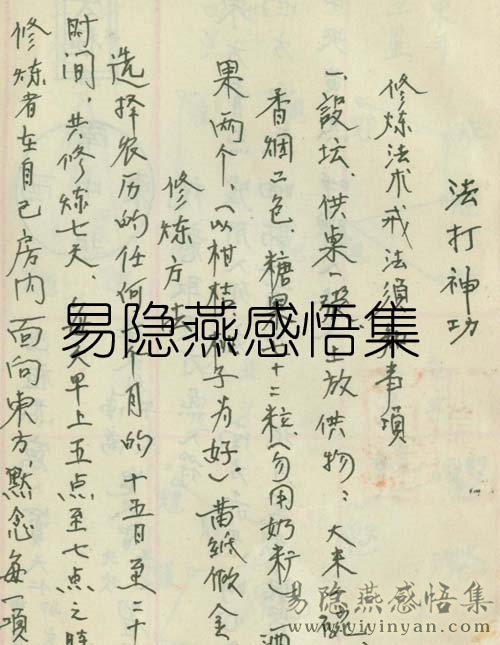 法打神功
修炼法术戒法须知事項
一、設坛、供桌一張上放供物：大米
香烟二色、糖果十二粒（勿用奶籽）酒
果两个、（以柑桔桃子为好。）黄紙做金
修炼方法
选择农历的任何一个月的十五日至二十
时间，共修炼七天、每天早上五点至七点之時
修炼者在自己房内面向東方，默念每一項
易隐燕感悟集
易隐燕感悟集
www.yiyinyan.com